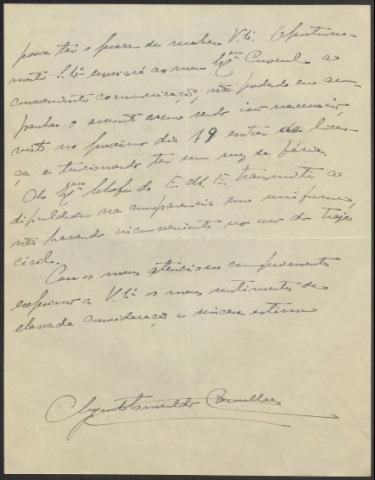 possa ter o prazer de receber V. Ex.ª Oportuna-
mente S. Ex.ª enviará ao meu Ex.mo Consul a
conveniente comunicação, não podendo eu acom-
panhar o assunto como sendo isso necessário,
visto no proximo dia 19 entrar de licen-
ça e tencionando ter um mez de férias.
Ao Ex.mo Chefe do E. M. E. transmito a
dificuldade na comparencia em uniforme,
não havendo inconveniente no uso do traje
civil.
Com os meus atenciosos cumprimentos
exprimo a V. Ex.ª os meus sentimentos de
elevada consideração e sincera estima